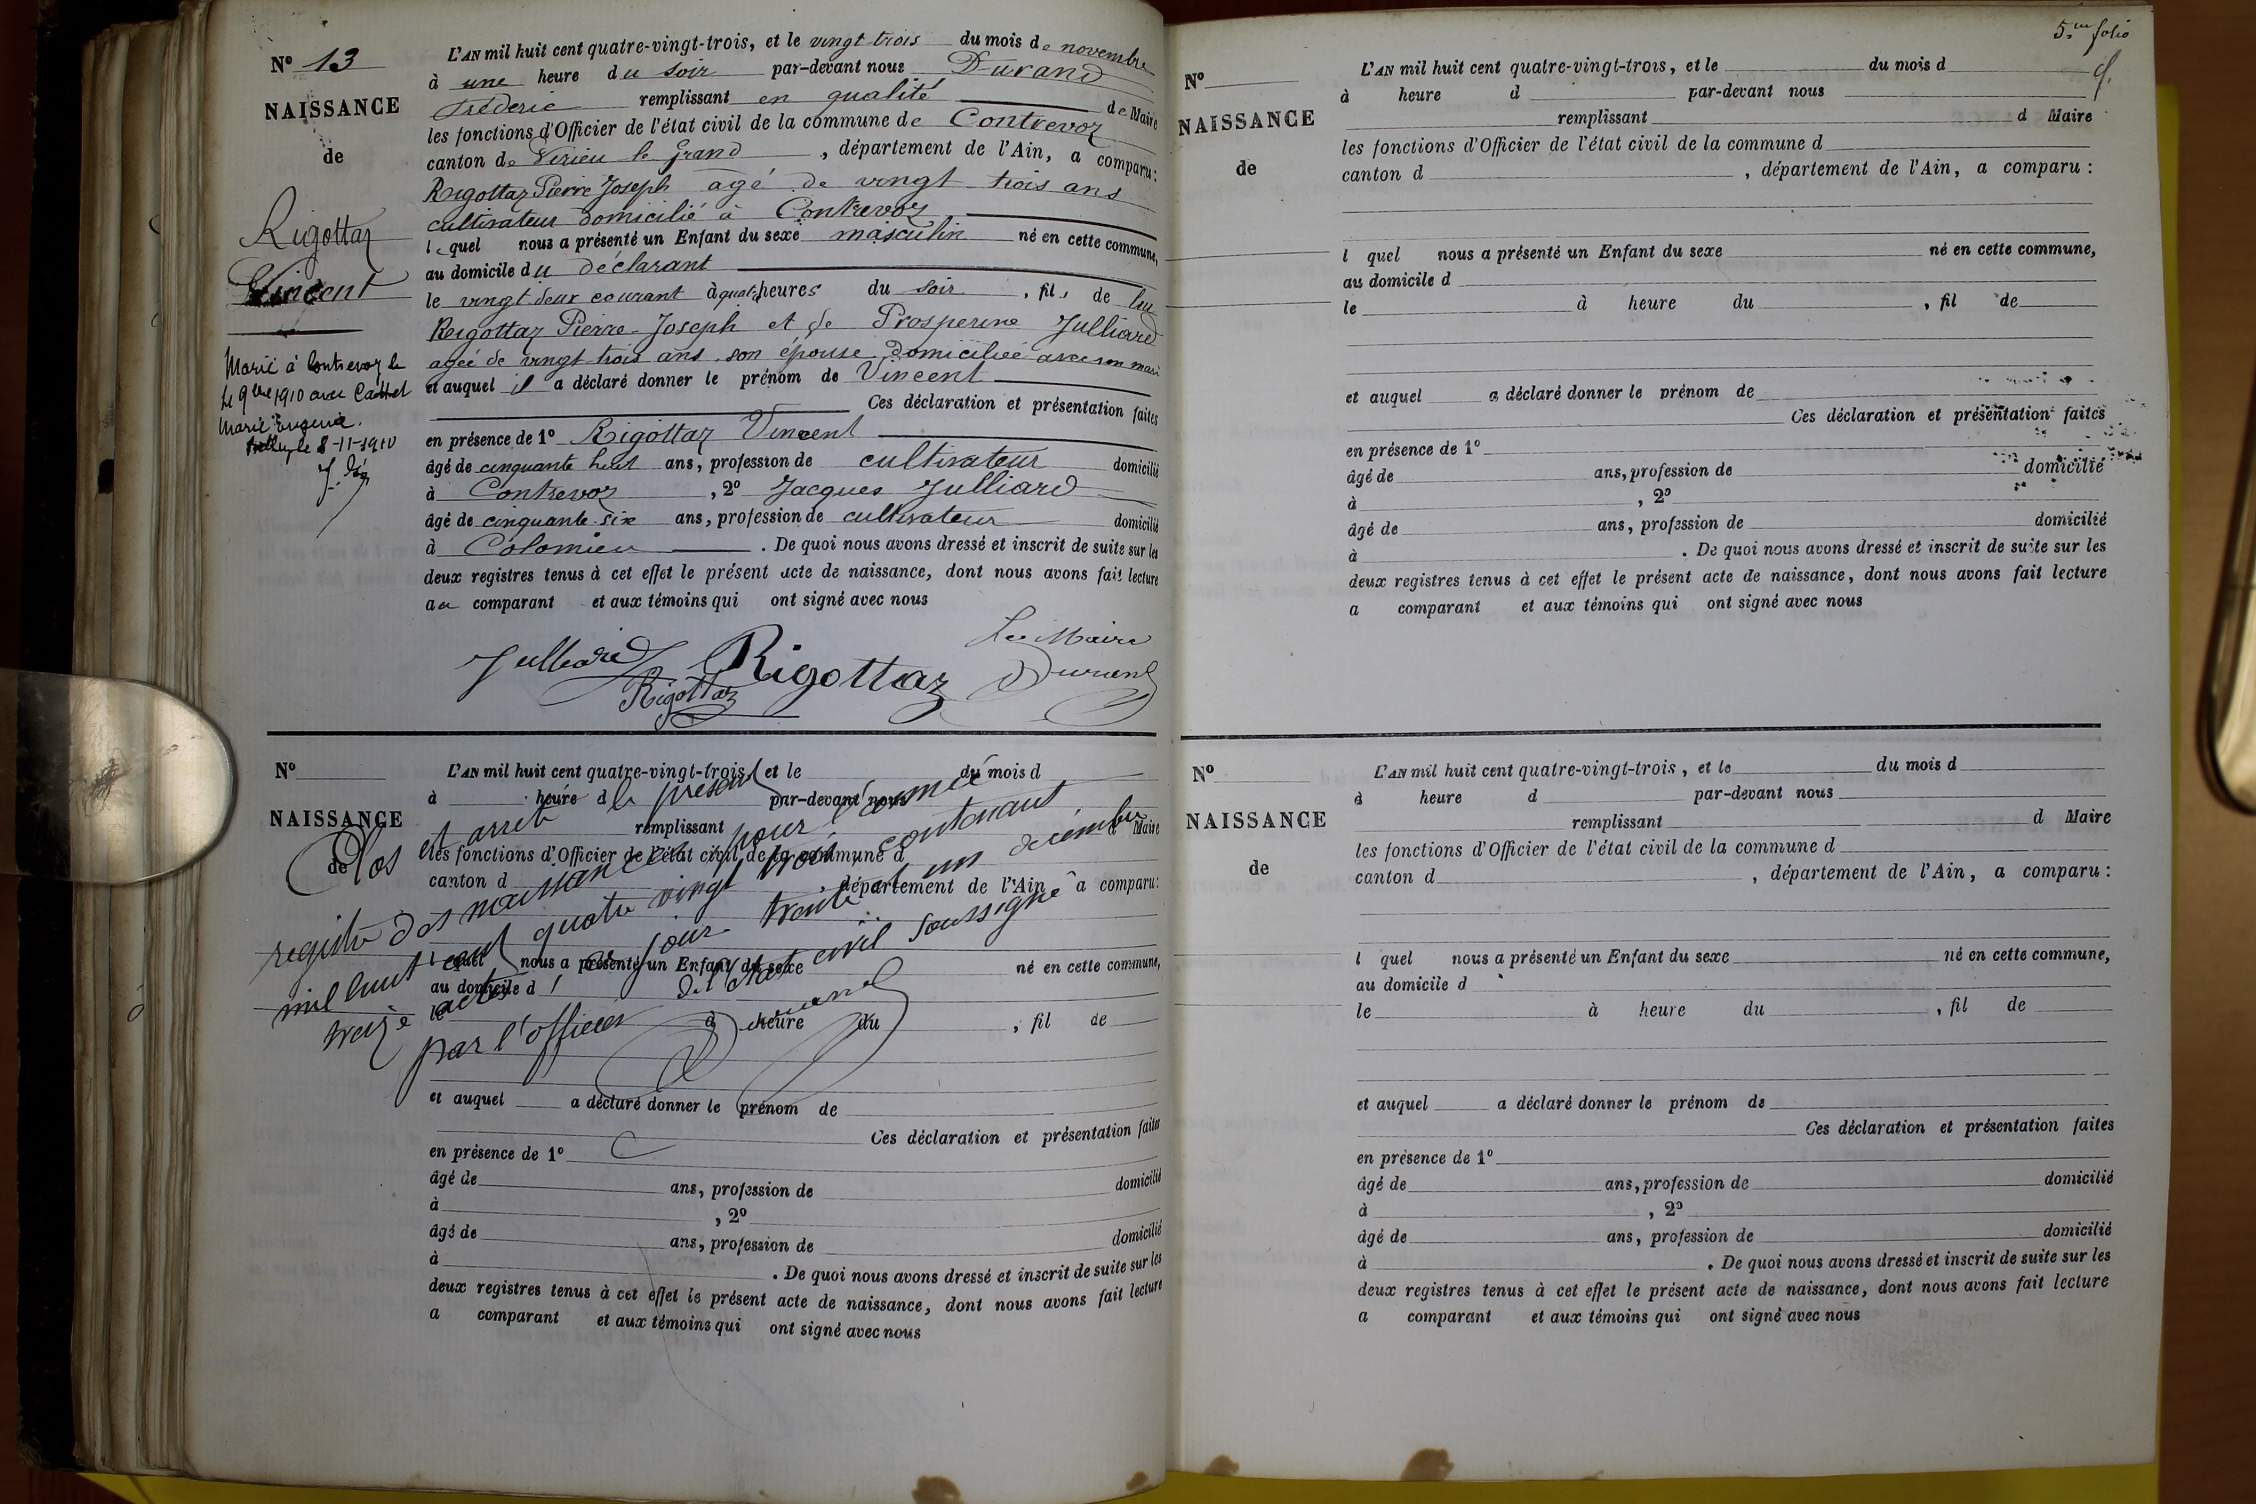 N° 13
NAISSANCE
de
Rigottaz
Vincent
Marié à Contrevoz le
9bre 1910 avec
Marie Eugénie.
Belley le 8-11-1910
L'AN mil huit cent quatre-vingt-trois, et le vingt trois du mois de novembre
à une heure du soir par-devant nous Durand
Fréderic remplissant en qualité de Maire
les fonctions d'Officier de l'état civil de la commune de Contrevoz
canton de Virieu le Grand, département de l'Ain, a comparu :
Rigottaz Pierre Joseph agé de vingt trois ans
cultivateur domicilié à Contrevoz
lequel nous a présenté un Enfant du sexe masculin né en cette commune,
au domicile du déclarant
le vingt deux courant à quatre heures du soir, fils de lui
Rigottaz Pierre-Joseph et de Prosperine Julliard
agée de vingt trois ans son épouse domiciliée avec son mari
et auquel il a déclaré donner le prénom de Vincent
Ces déclaration et présentation faites
en présence de 1° Rigottaz Vincent
âgé de cinquante huit ans, profession de cultivateur domicilié
à Contrevoz, 2° Jacques Julliard
âgé de cinquante-six ans, profession de cultivateur domicilié
à Colomieu. De quoi nous avons dressé et inscrit de suite sur les
deux registres tenus à cet effet le présent acte de naissance, dont nous avons fait lecture
au comparant et aux témoins qui ont signé avec nous
Le Maire
Julliard Rigottaz Durand
Rigottaz
N°
NAISSANCE
de
L'AN mil huit cent quatre-vingt-trois, et le du mois d
à heure d par-devant nous
remplissant d Maire
les fonctions d'Officier de l'état civil de la commune d
canton d, département de l'Ain, a comparu :
l quel nous a présenté un Enfant du sexe né en cette commune,
au domicile d
le à heure du, fil de
et auquel a déclaré donner le prénom de
Ces déclaration et présentation faites
en présence de 1°
âgé de ans, profession de domicilié
à, 2°
âgé de ans, profession de domicilié
à. De quoi nous avons dressé et inscrit de suite sur les
deux registres tenus à cet effet le présent acte de naissance, dont nous avons fait lecture
a comparant et aux témoins qui ont signé avec nous
Clos et arreté le présent
registre des naissances pour l'année
mil huit cent quatre vingt trois contenant
treize actes ce jour trente et un décembre
par l'officier de l'état civil soussigné
Durand
5.me folio
N°
NAISSANCE
de
L'AN mil huit cent quatre-vingt-trois, et le du mois d
à heure d par-devant nous
remplissant d Maire
les fonctions d'Officier de l'état civil de la commune d
canton d, département de l'Ain, a comparu :
l quel nous a présenté un Enfant du sexe né en cette commune,
au domicile d
le à heure du, fil de
et auquel a déclaré donner le prénom de
Ces déclaration et présentation faites
en présence de 1°
âgé de ans, profession de domicilié
à, 2°
âgé de ans, profession de domicilié
à. De quoi nous avons dressé et inscrit de suite sur les
deux registres tenus à cet effet le présent acte de naissance, dont nous avons fait lecture
a comparant et aux témoins qui ont signé avec nous
N°
NAISSANCE
de
L'AN mil huit cent quatre-vingt-trois, et le du mois d
à heure d par-devant nous
remplissant d Maire
les fonctions d'Officier de l'état civil de la commune d
canton d, département de l'Ain, a comparu :
l quel nous a présenté un Enfant du sexe né en cette commune,
au domicile d
le à heure du, fil de
et auquel a déclaré donner le prénom de
Ces déclaration et présentation faites
en présence de 1°
âgé de ans, profession de domicilié
à, 2°
âgé de ans, profession de domicilié
à. De quoi nous avons dressé et inscrit de suite sur les
deux registres tenus à cet effet le présent acte de naissance, dont nous avons fait lecture
a comparant et aux témoins qui ont signé avec nous